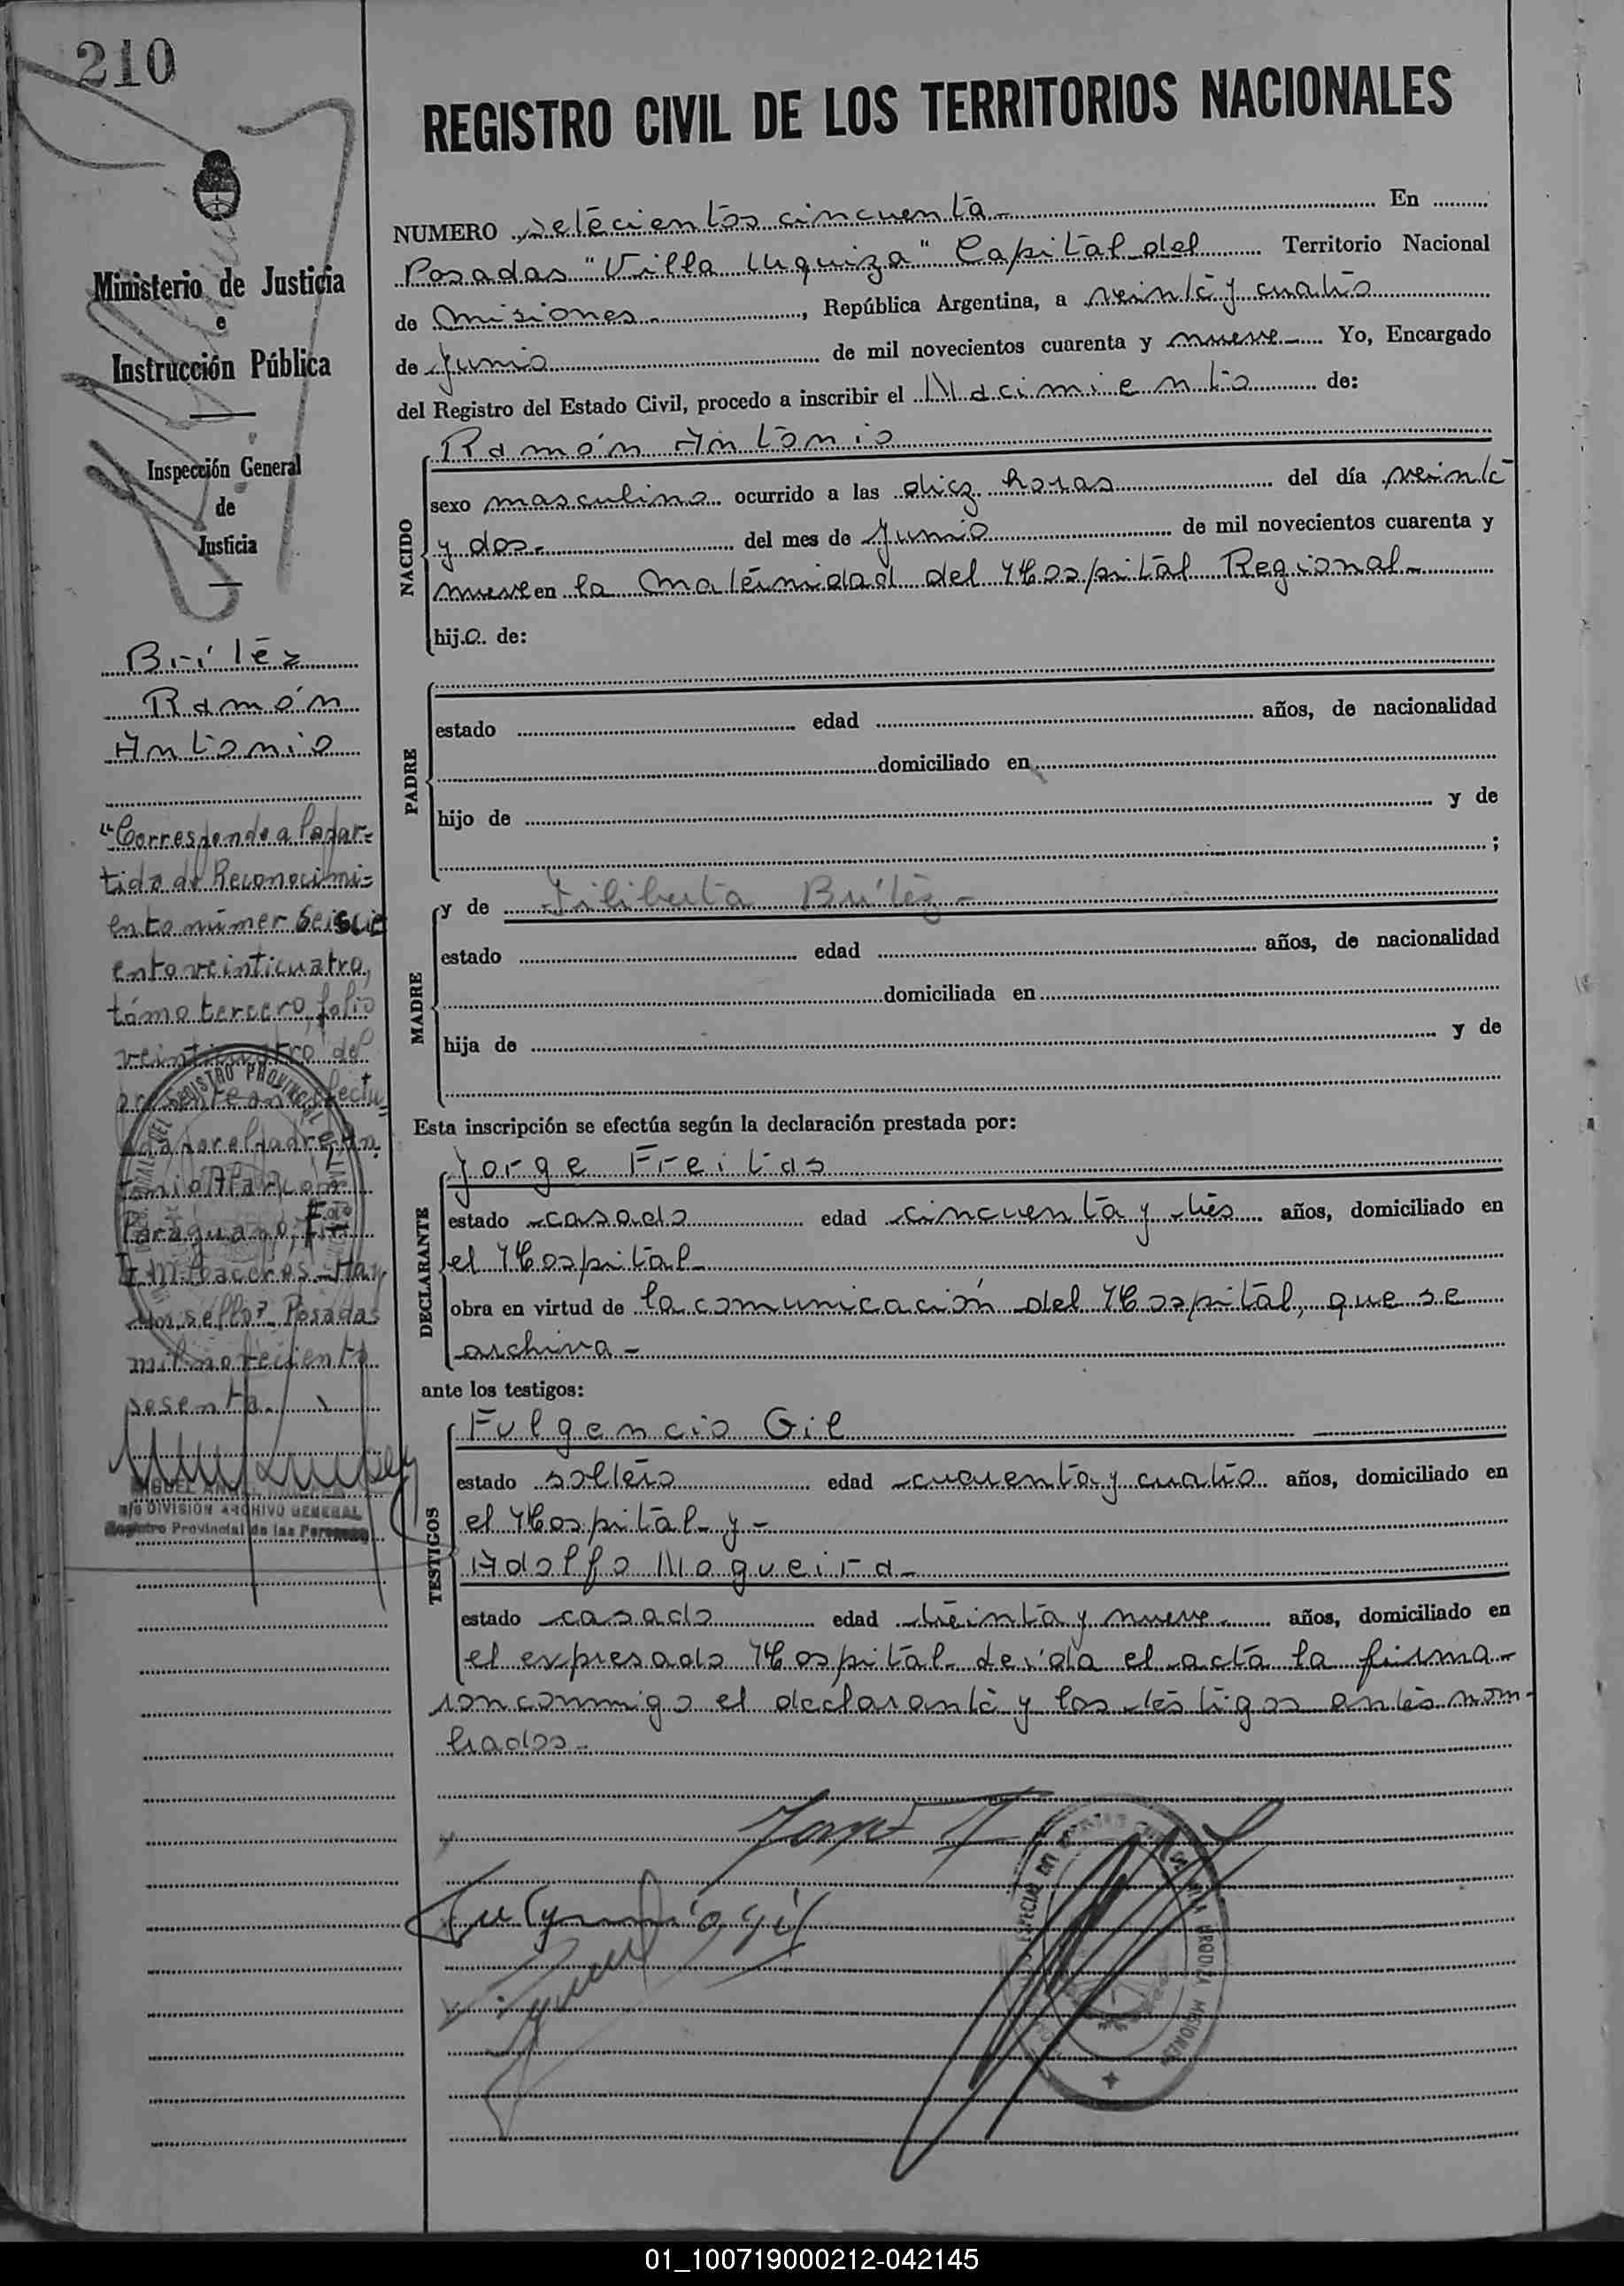 210
REGISTRO CIVIL DE LOS TERRITORIOS NACIONALES
Ministerio de Justicia
e
Instrucción Pública
Inspección General
de
Justicia
Brítez
Ramón
Antonio
"Corresponde a la par=
tida de Reconocimi=
ento númer Seiscie
ento veinticuatro,
tómo tercero, folio
veinticuatro del
por el padre An
tonio
Paraguayo,
Hay
un sello? Posadas
mil noveciento
sesenta.
DIVISION ARCHIVO GENERAL
Registro Provincial de las Personas
NUMERO setecientos cincuenta - En
Posadas "Villa Urquiza" Capital del Territorio Nacional
de Misiones - , República Argentina, a veinte y cuatro
de Junio de mil novecientos cuarenta y nueve - Yo, Encargado
del Registro del Estado Civil, procedo a inscribir el Nacimiento de:
NACIDO
Ramón Antonio
sexo masculino ocurrido a las diez horas del día veinte
y dos - del mes de Junio de mil novecientos cuarenta y
nueve en la Maternidad del Hospital Regional -
hijo de:
PADRE
estado edad años, de nacionalidad
domiciliado en
hijo de y de
;
MADRE
y de Filiberta Brítez -
estado edad años, de nacionalidad
domiciliada en
hija de y de
Esta inscripción se efectúa según la declaración prestada por:
DECLARANTE
Jorge Freitas
estado casado edad cincuenta y tres años, domiciliado en
el Hospital
obra en virtud de la comunicación del Hospital, que se
archiva -
ante los testigos:
TESTIGOS
Fulgencio Gil
estado soltero edad cuarenta y cuatro años, domiciliado en
el Hospital y -
Adolfo Nogueira -
estado casado edad treinta y nueve - años, domiciliado en
el expresado Hospital. Leída el acta la firma-
ron conmigo el declarante y los testigos antes nom-
brados -
Fulgencio Gil
01_100719000212-042145